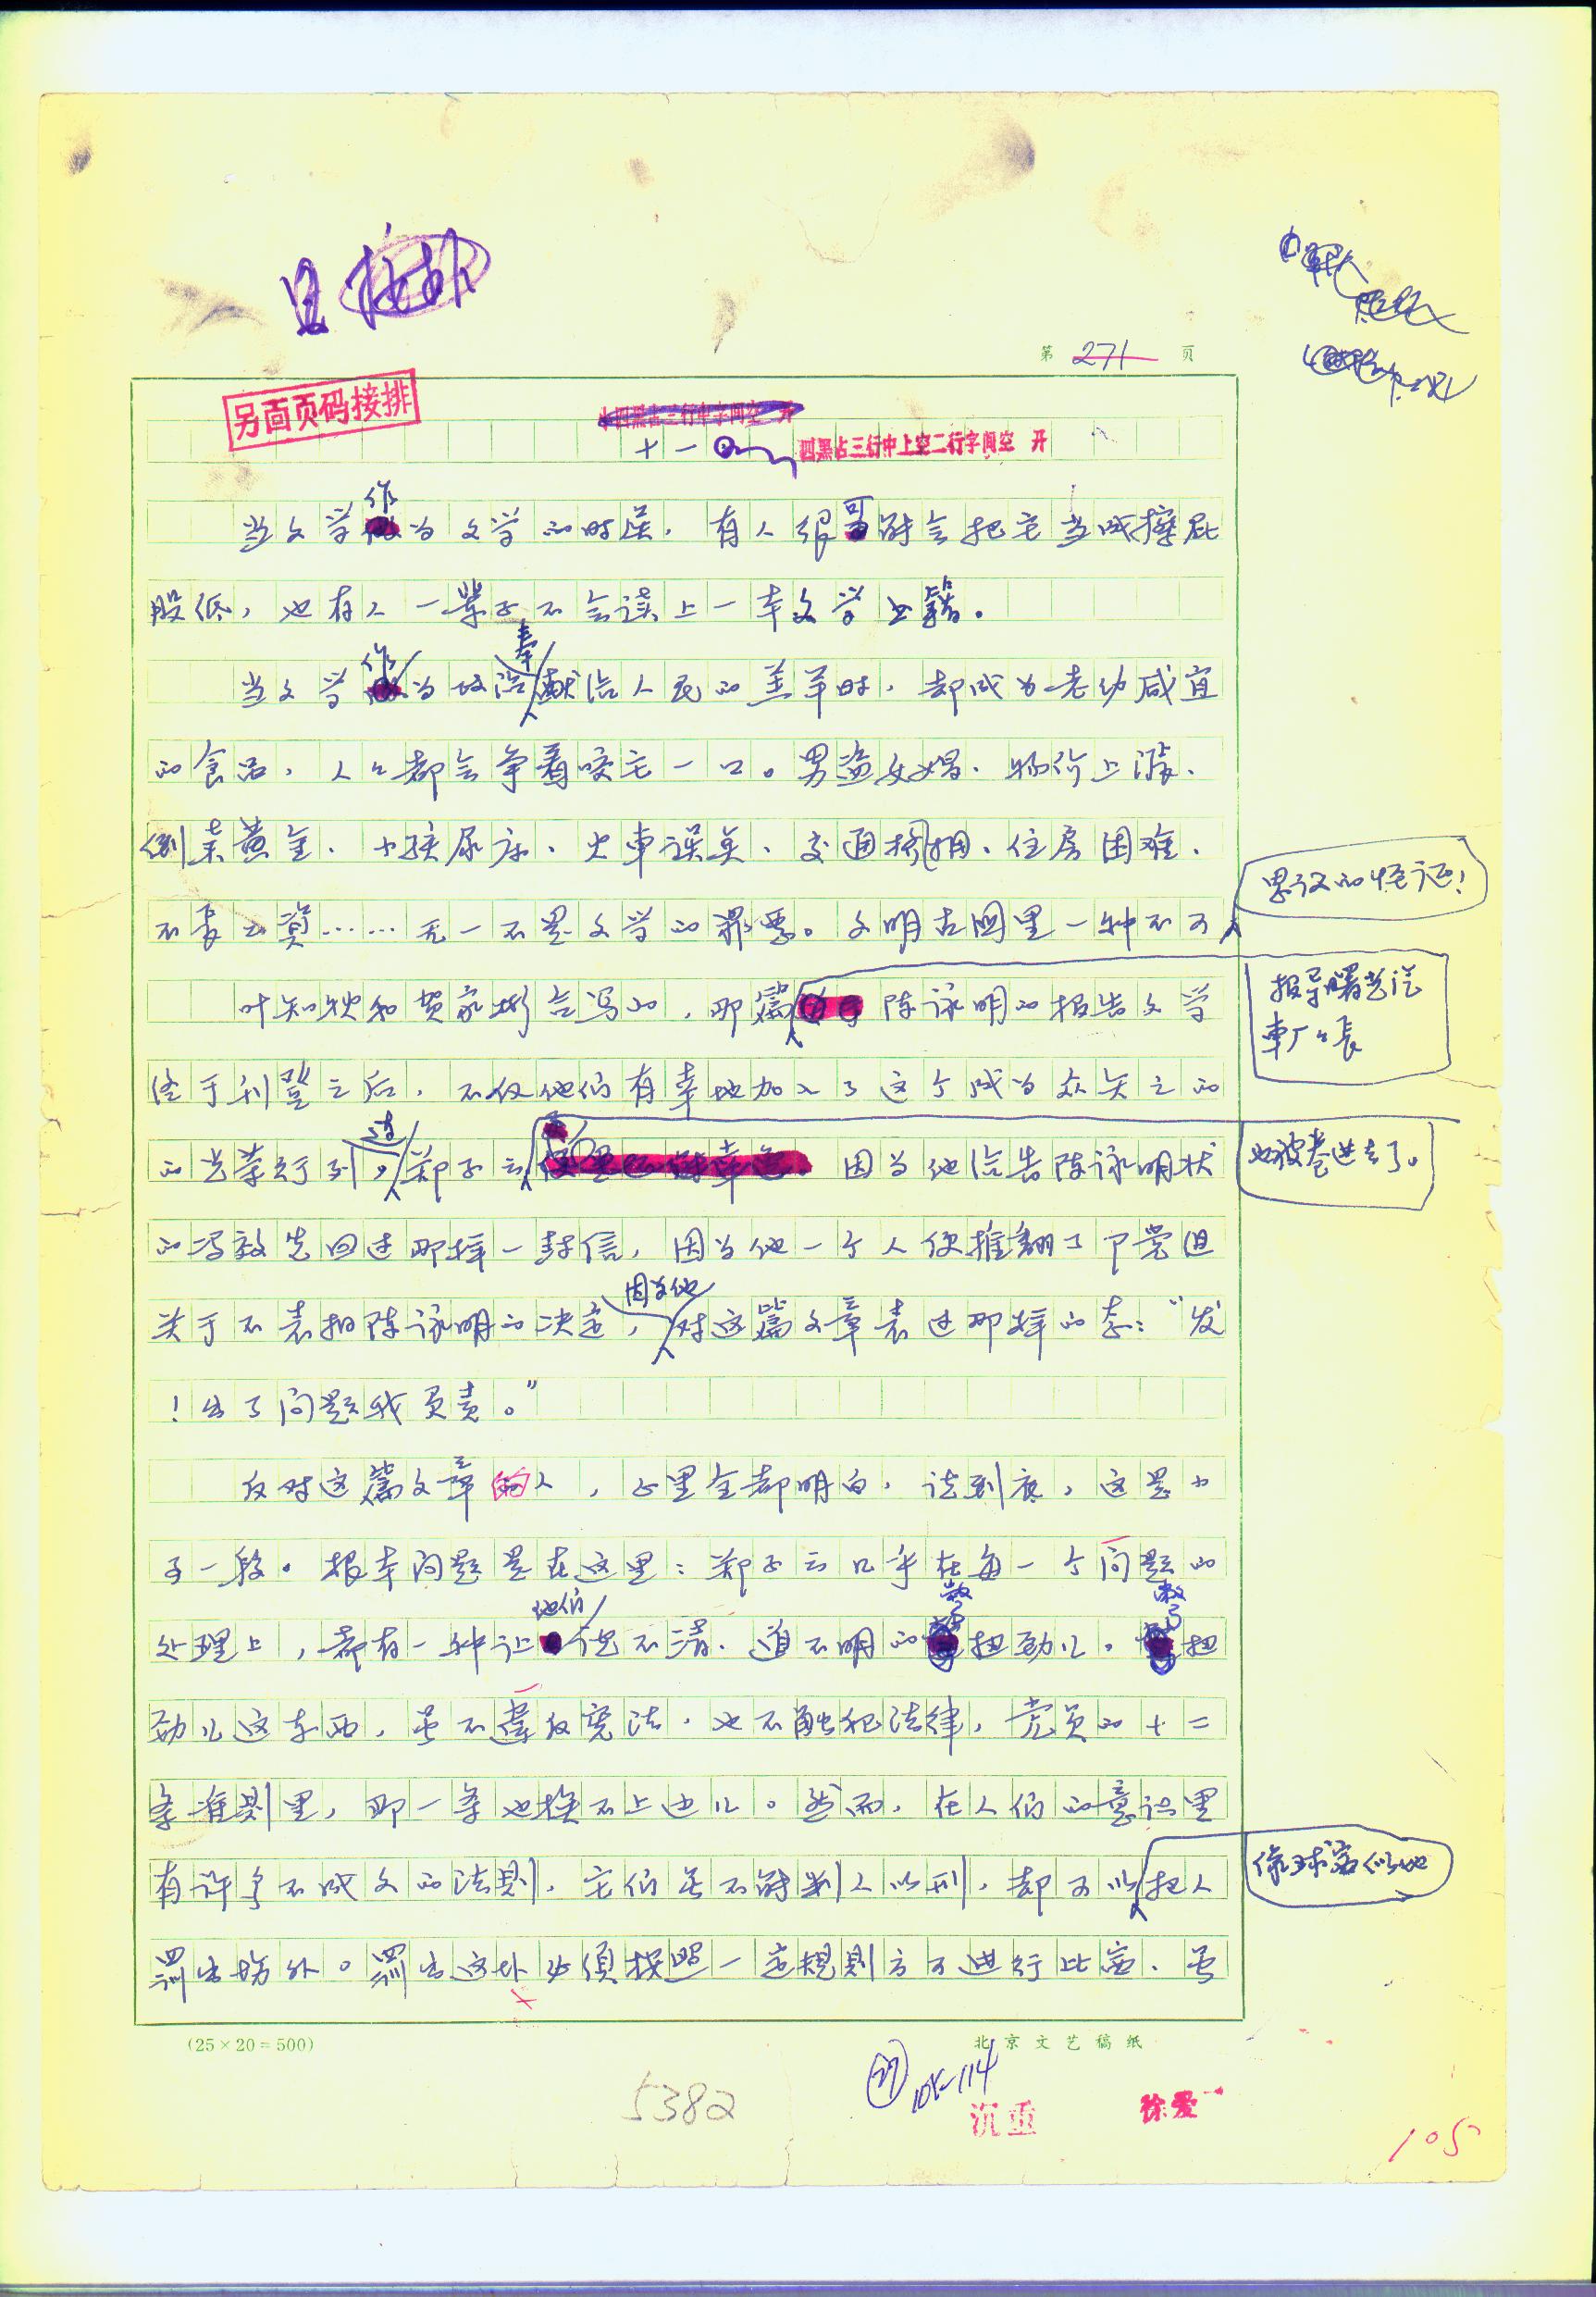 另面页码接排
第 271 页
十一
四黑占三行中上空二行字间空 开
当文学作为文学的时候，有人很可能会把它当成擦屁
股纸，也有人一辈子不会读上一本文学书籍。
当文学作为政治奉献给人民的羔羊时，却成为老幼咸宜
的食品，人人都会争着咬它一口。男盗女娼、物价上涨、
倒卖黄金、小孩尿床、火车误点、交通拥挤、住房困难、
不长工资……无一不是文学的罪恶。文明古国里一种不可
思议的怪症！
叶知秋和贺家彬合写的，那篇报导曙光汽
车厂厂长
陈咏明的报告文学
终于刊登之后，不仅他们有幸地加入了这个成为众矢之的
的光荣行列，连郑子云也被卷进去了。
因为他给告陈咏明状
的冯效先回过那样一封信，因为他一个人便推翻了部党组
关于不表扬陈咏明的决定，因为他对这篇文章表过那样的态：“发
！出了问题我负责。”
反对这篇文章的人，心里全都明白，说到底，这是小
事一段。根本问题是在这里：郑子云几乎在每一个问题的
处理上，都有一种让他们说不清、道不明的扭劲儿。扭
劲儿这东西，虽不违反宪法，也不触犯法律，党员的十二
条准则里，哪一条也挨不上边儿。然而，在人们的意识里
有许多不成文的法则，它们虽不能判人以刑，却可以像球赛似地
把人
罚出场外。罚出这外必须按照一定规则方可进行比赛、虽
(25×20=500)
北京文艺稿纸
5382
27 105-114
沉重
徐爱
105